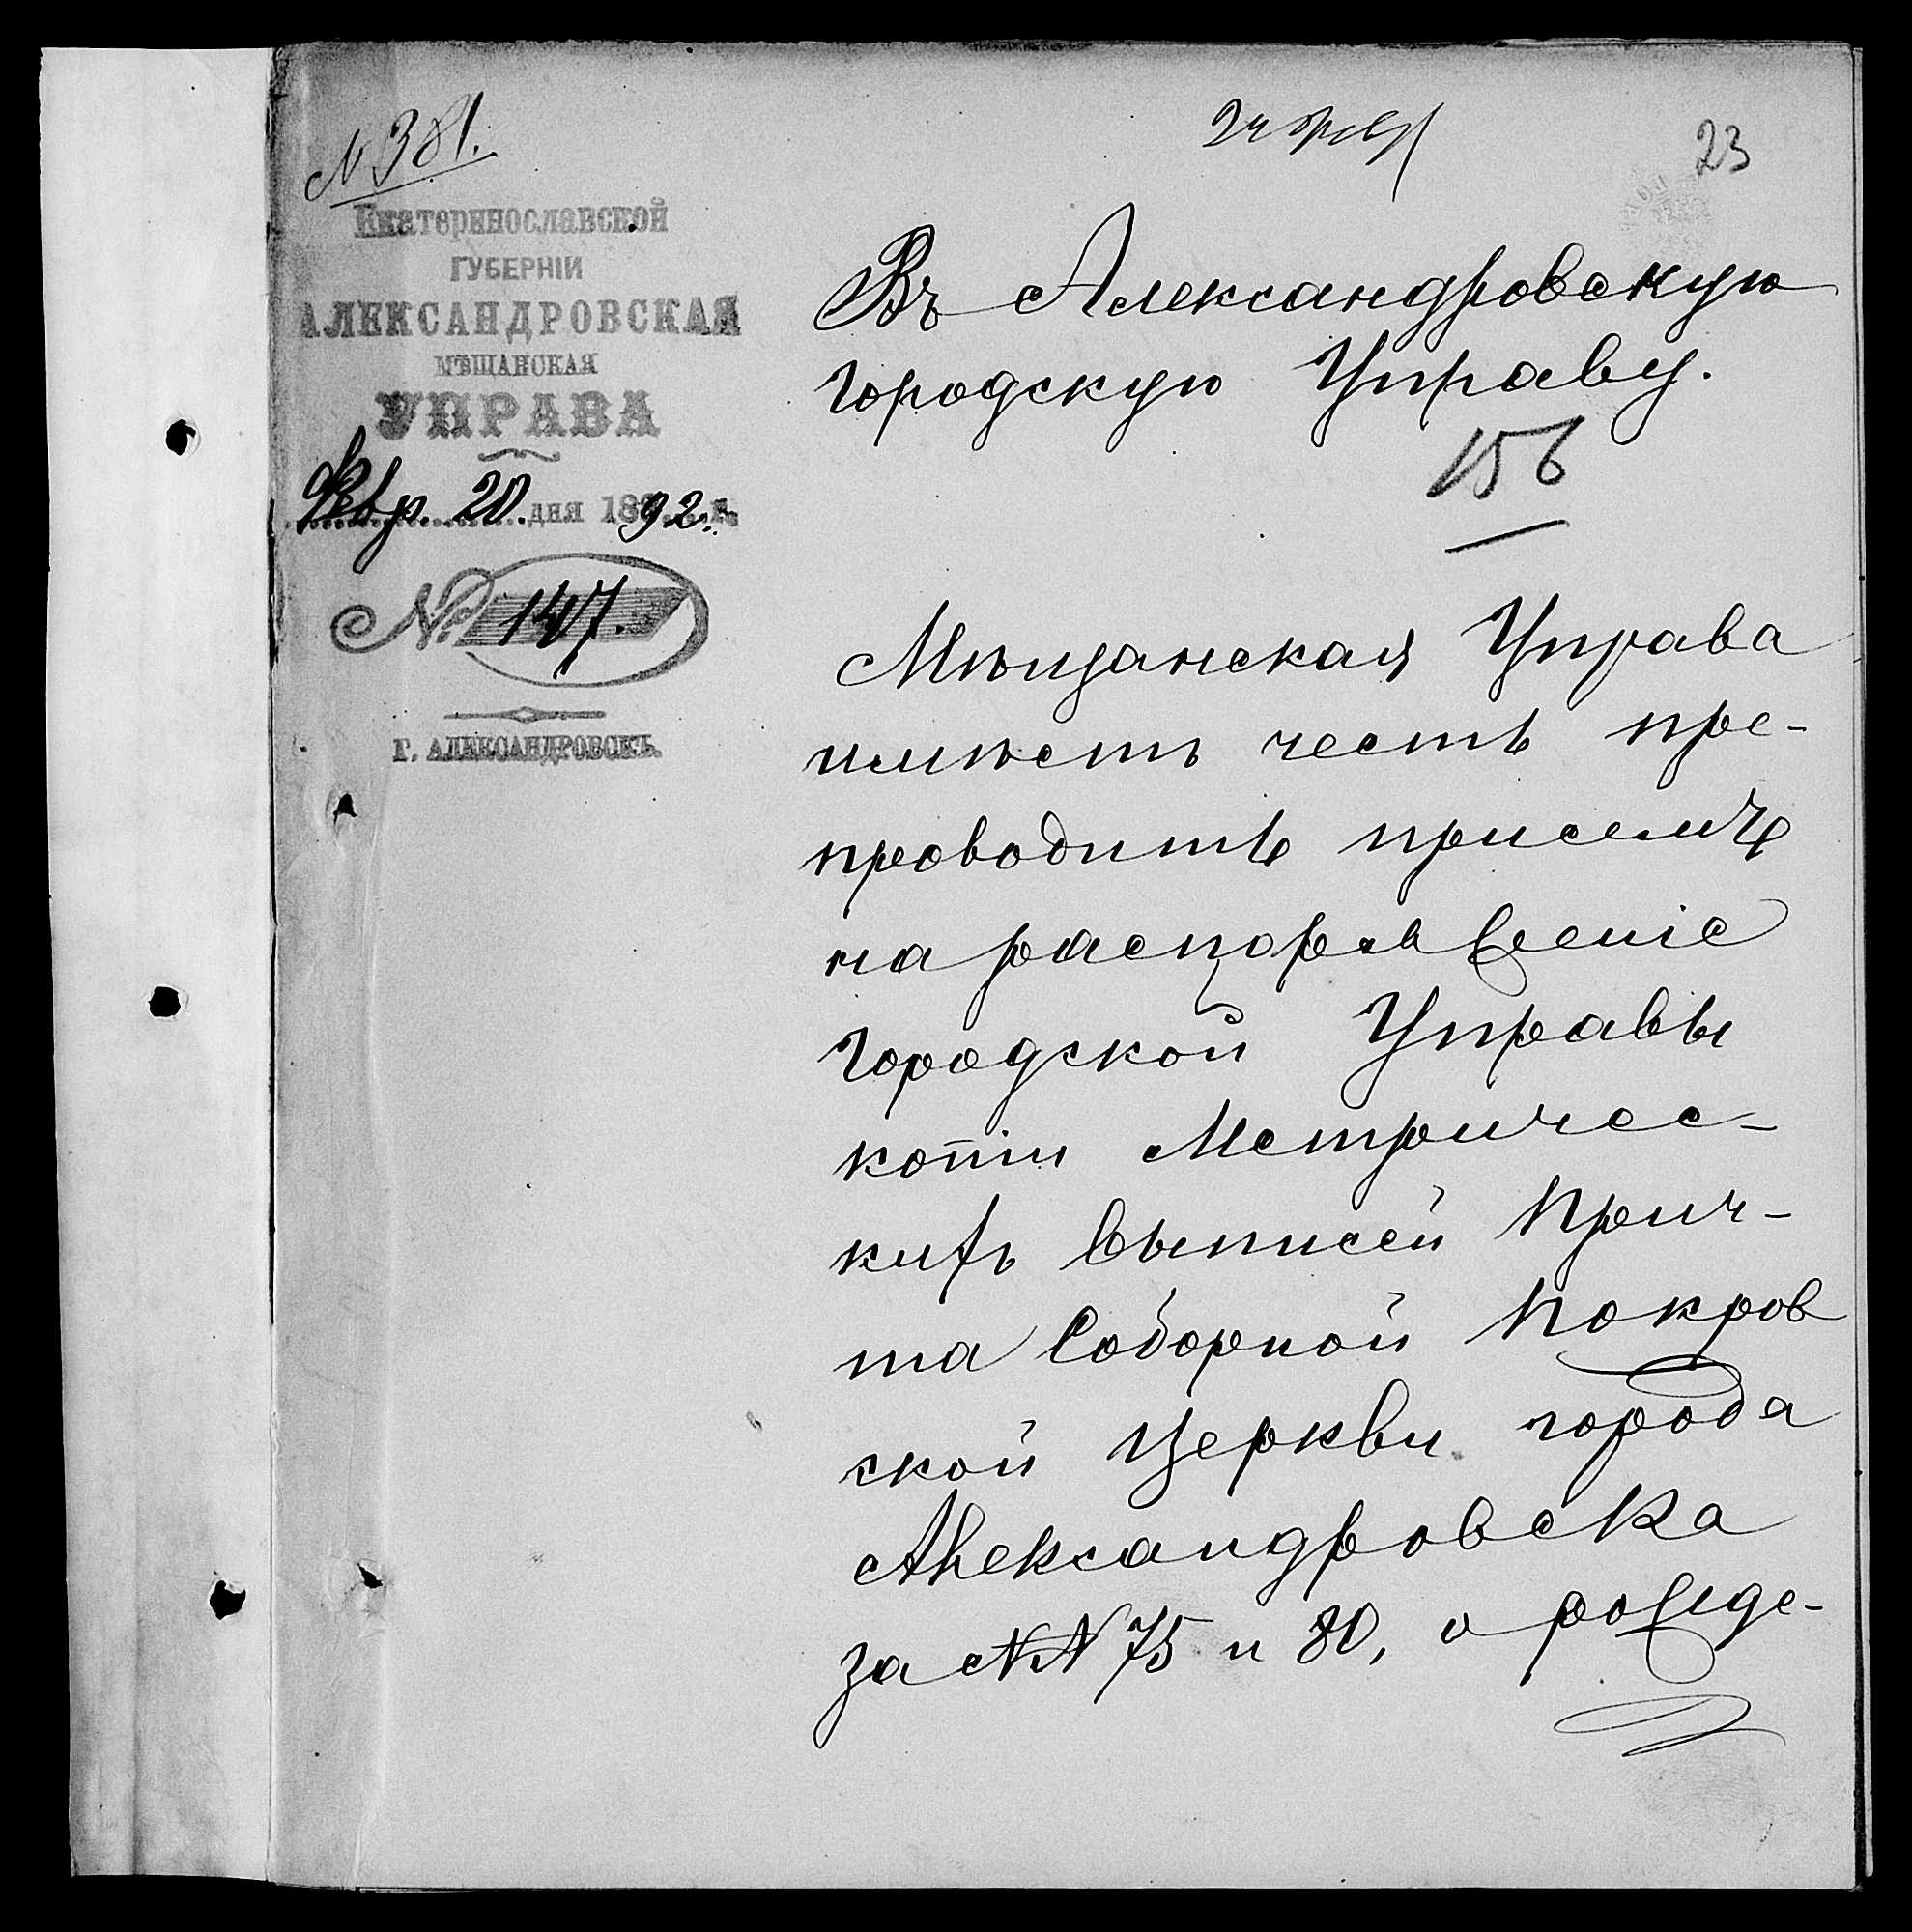 № 381.
24 февр
23
Екатеринославской
ГУБЕРНІИ
АЛЕКСАНДРОВСКАЯ
МѢЩАНСКАЯ
УПРАВА
Февр. 20. дня 1892 г.
№ 147.
Г. АЛЕКСАНДРОВСКЪ.
Въ Александровскую
Городскую Управу.
156
Мѣщанская Управа
имѣетъ честь пре-
проводить при семъ
на распоряженіе
Городской Управы
копіи Метричес-
кихъ выписей Прич-
та Соборной Покров
ской Церкви города
Александровска
за №№ 75 и 80, о рожде-